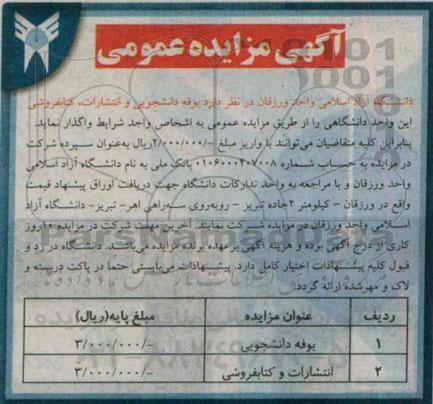 آگهی مزایده عمومی
دانشگاه آزاد اسلامی واحد ورزقان در نظر دارد بوفه دانشجویی و انتشارات، کتابفروشی
این واحد دانشگاهی را از طریق مزایده عمومی به اشخاص واجد شرایط واگذار نماید.
بنابراین کلیه متقاضیان می‌توانند با واریز مبلغ -/۲/۰۰۰/۰۰۰ریال به‌عنوان سپرده شرکت
در مزایده به حساب شماره ۰۱۰۶۰۰۰۴۰۷۰۰۸ بانک ملی به نام دانشگاه آزاد اسلامی
واحد ورزقان و با مراجعه به واحد تدارکات دانشگاه جهت دریافت اوراق پیشنهاد قیمت
واقع در ورزقان - کیلومتر ۲جاده تبریز - روبه‌روی سه‌راهی اهر- تبریز- دانشگاه آزاد
اسلامی واحد ورزقان در مزایده شرکت نمایند. آخرین مهلت شرکت در مزایده ۱۰روز
کاری از درج آگهی بوده و هزینه آگهی برعهده برنده مزایده می‌باشد. دانشگاه در رد و
قبول کلیه پیشنهادات اختیار کامل دارد. پیشنهادات می‌بایستی حتما در پاکت دربسته و
لاک و مهرشده ارائه گردد.
ردیف عنوان مزایده مبلغ پایه(ریال)
۱ بوفه دانشجویی -/۳/۰۰۰/۰۰۰
۲ انتشارات و کتابفروشی -/۳/۰۰۰/۰۰۰